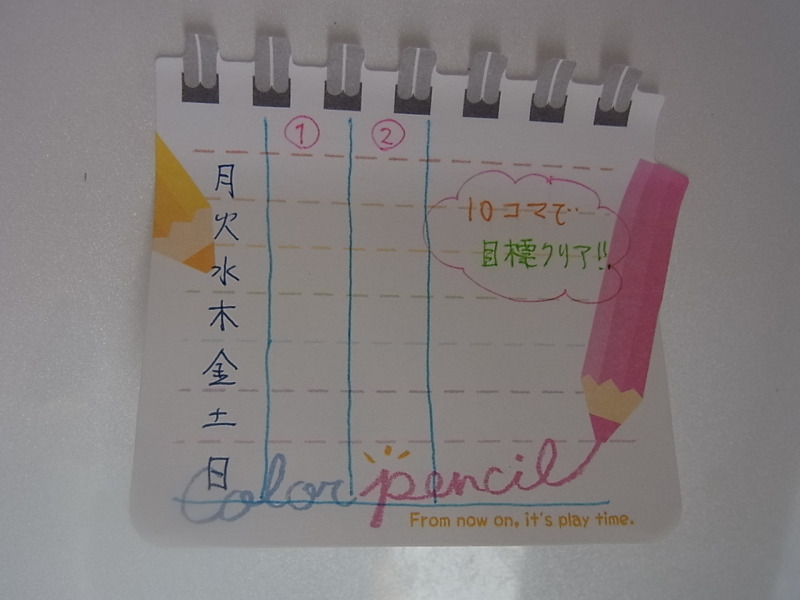 ① ②
月
火
水
木
金
土
日
10コマで
目標クリア!!
Color pencil
From now on, it's play time.